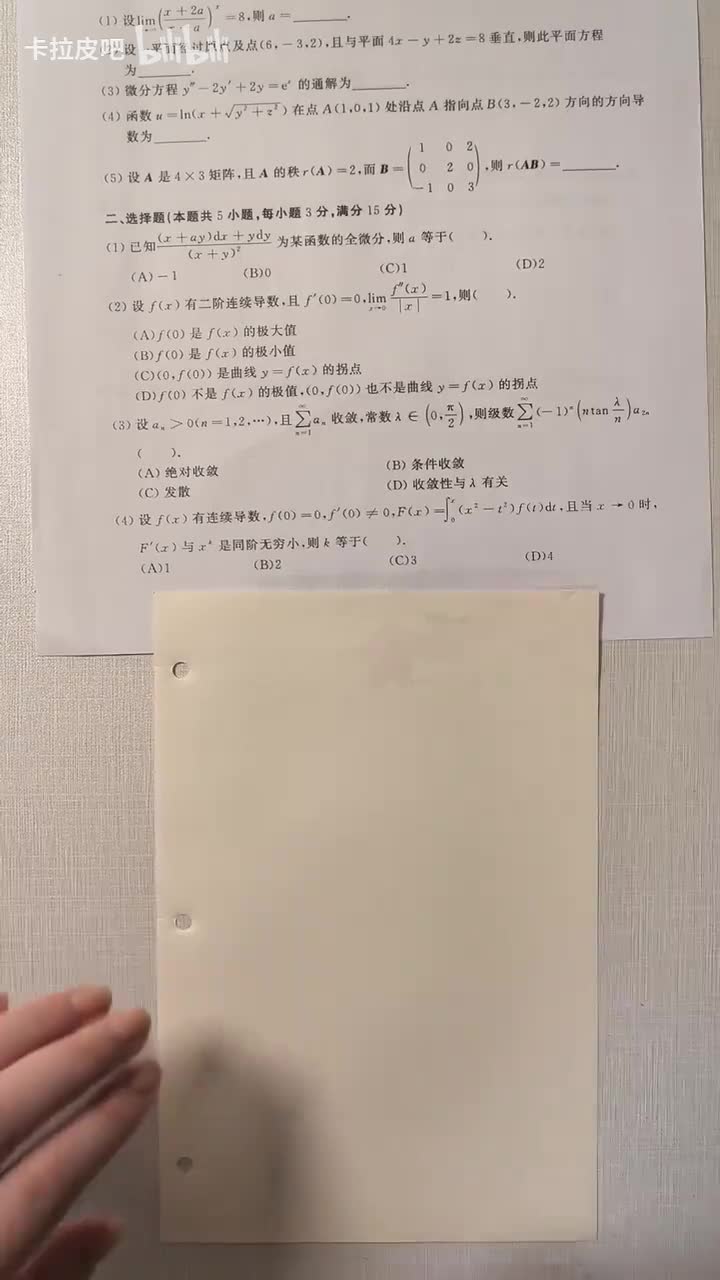 (1) 设lim(x+2a / a)^x=8,则 a=______.
卡拉皮吧 bilibili
设一平面 点及点(6,-3,2),且与平面 4x-y+2z=8 垂直,则此平面方程
为______.
(3) 微分方程 y″-2y′+2y=e^x 的通解为______.
(4) 函数 u=ln(x+√(y²+z²)) 在点 A(1,0,1) 处沿点 A 指向点 B(3,-2,2) 方向的方向导
数为______.
(5) 设 A 是 4×3 矩阵,且 A 的秩 r(A)=2,而 B=(1 0 2; 0 2 0; -1 0 3),则 r(AB)=______.
二、选择题(本题共 5 小题,每小题 3 分,满分 15 分)
(1) 已知 ((x+ay)dx+ydy)/(x+y)² 为某函数的全微分,则 a 等于( ).
(A)-1 (B)0 (C)1 (D)2
(2) 设 f(x) 有二阶连续导数,且 f′(0)=0,lim_{x→0} f″(x)/|x|=1,则( ).
(A)f(0) 是 f(x) 的极大值
(B)f(0) 是 f(x) 的极小值
(C)(0,f(0)) 是曲线 y=f(x) 的拐点
(D)f(0) 不是 f(x) 的极值,(0,f(0)) 也不是曲线 y=f(x) 的拐点
(3) 设 aₙ>0(n=1,2,⋯),且 ∑_{n=1}^{∞} aₙ 收敛,常数 λ∈(0,π/2),则级数 ∑_{n=1}^{∞}(-1)ⁿ(n tan λ/n)a₂ₙ
( ).
(A) 绝对收敛 (B) 条件收敛
(C) 发散 (D) 收敛性与 λ 有关
(4) 设 f(x) 有连续导数,f(0)=0,f′(0)≠0,F(x)=∫₀ˣ(x²-t²)f(t)dt,且当 x→0 时,
F′(x) 与 x^k 是同阶无穷小,则 k 等于( ).
(A)1 (B)2 (C)3 (D)4